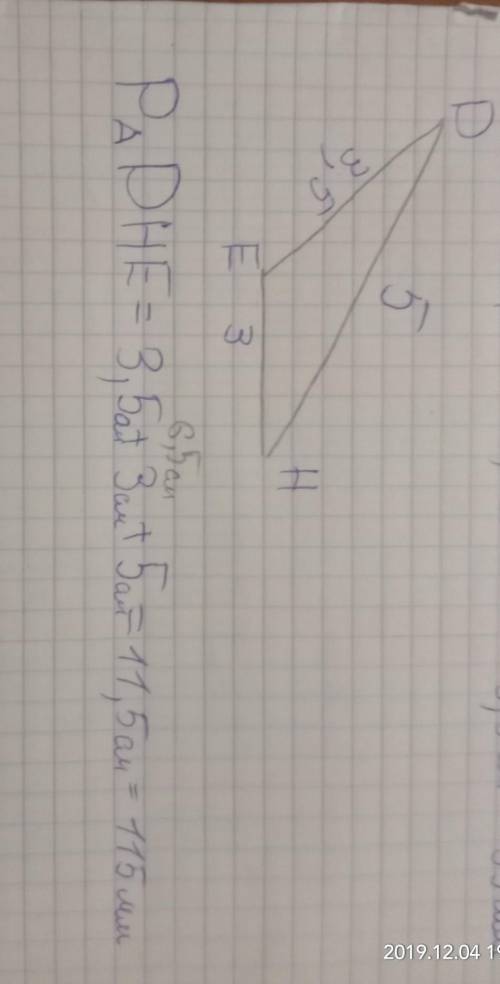 D
3,5
5
E
3
H
6,5см
P△DHE = 3,5см + 3см + 5см = 11,5см = 115 мм
2019.12.04 19